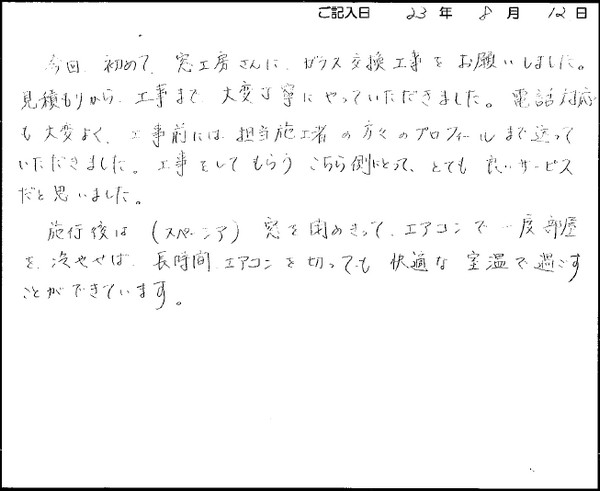 ご記入日 23年 8月 12日
今回、初めて、窓工房さんに、ガラス交換工事をお願いしました。
見積もりから、工事まで、大変丁寧にやっていただきました。電話対応
も大変よく、工事前には、担当施工者の方々のプロフィールまで送って
いただきました。工事をしてもらうこちら側にとって、とても良いサービス
だと思いました。
施行後は(スペーシア)窓を閉めきって、エアコンで一度部屋
を冷やせば、長時間エアコンを切っても快適な室温で過ごす
ことができています。